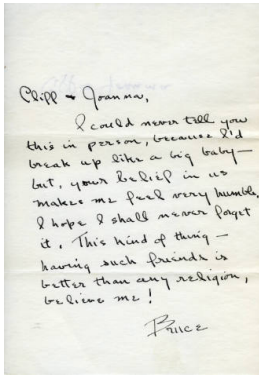 Cliff + Joanna,
I could never tell you
this in person, because I'd
break up like a big baby—
but, your belief in us
makes me feel very humble.
I hope I shall never forget
it. This kind of thing —
having such friends is
better than any religion,
believe me!
Bruce